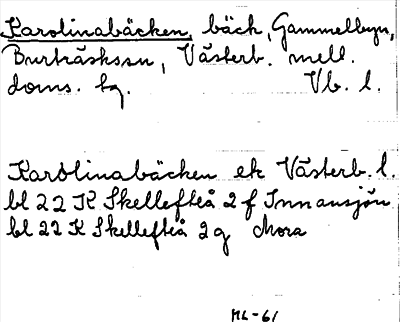 Karolinabäcken, bäck, Gammelbyn,
Burträsks sn, Västerb. mell.
doms. tg. Vb. l.
Karolinabäcken ek Västerb. l.
bl 22 K Skellefteå 2 f Innansjön
bl 22 K Skellefteå 2 g Mora
ML-61